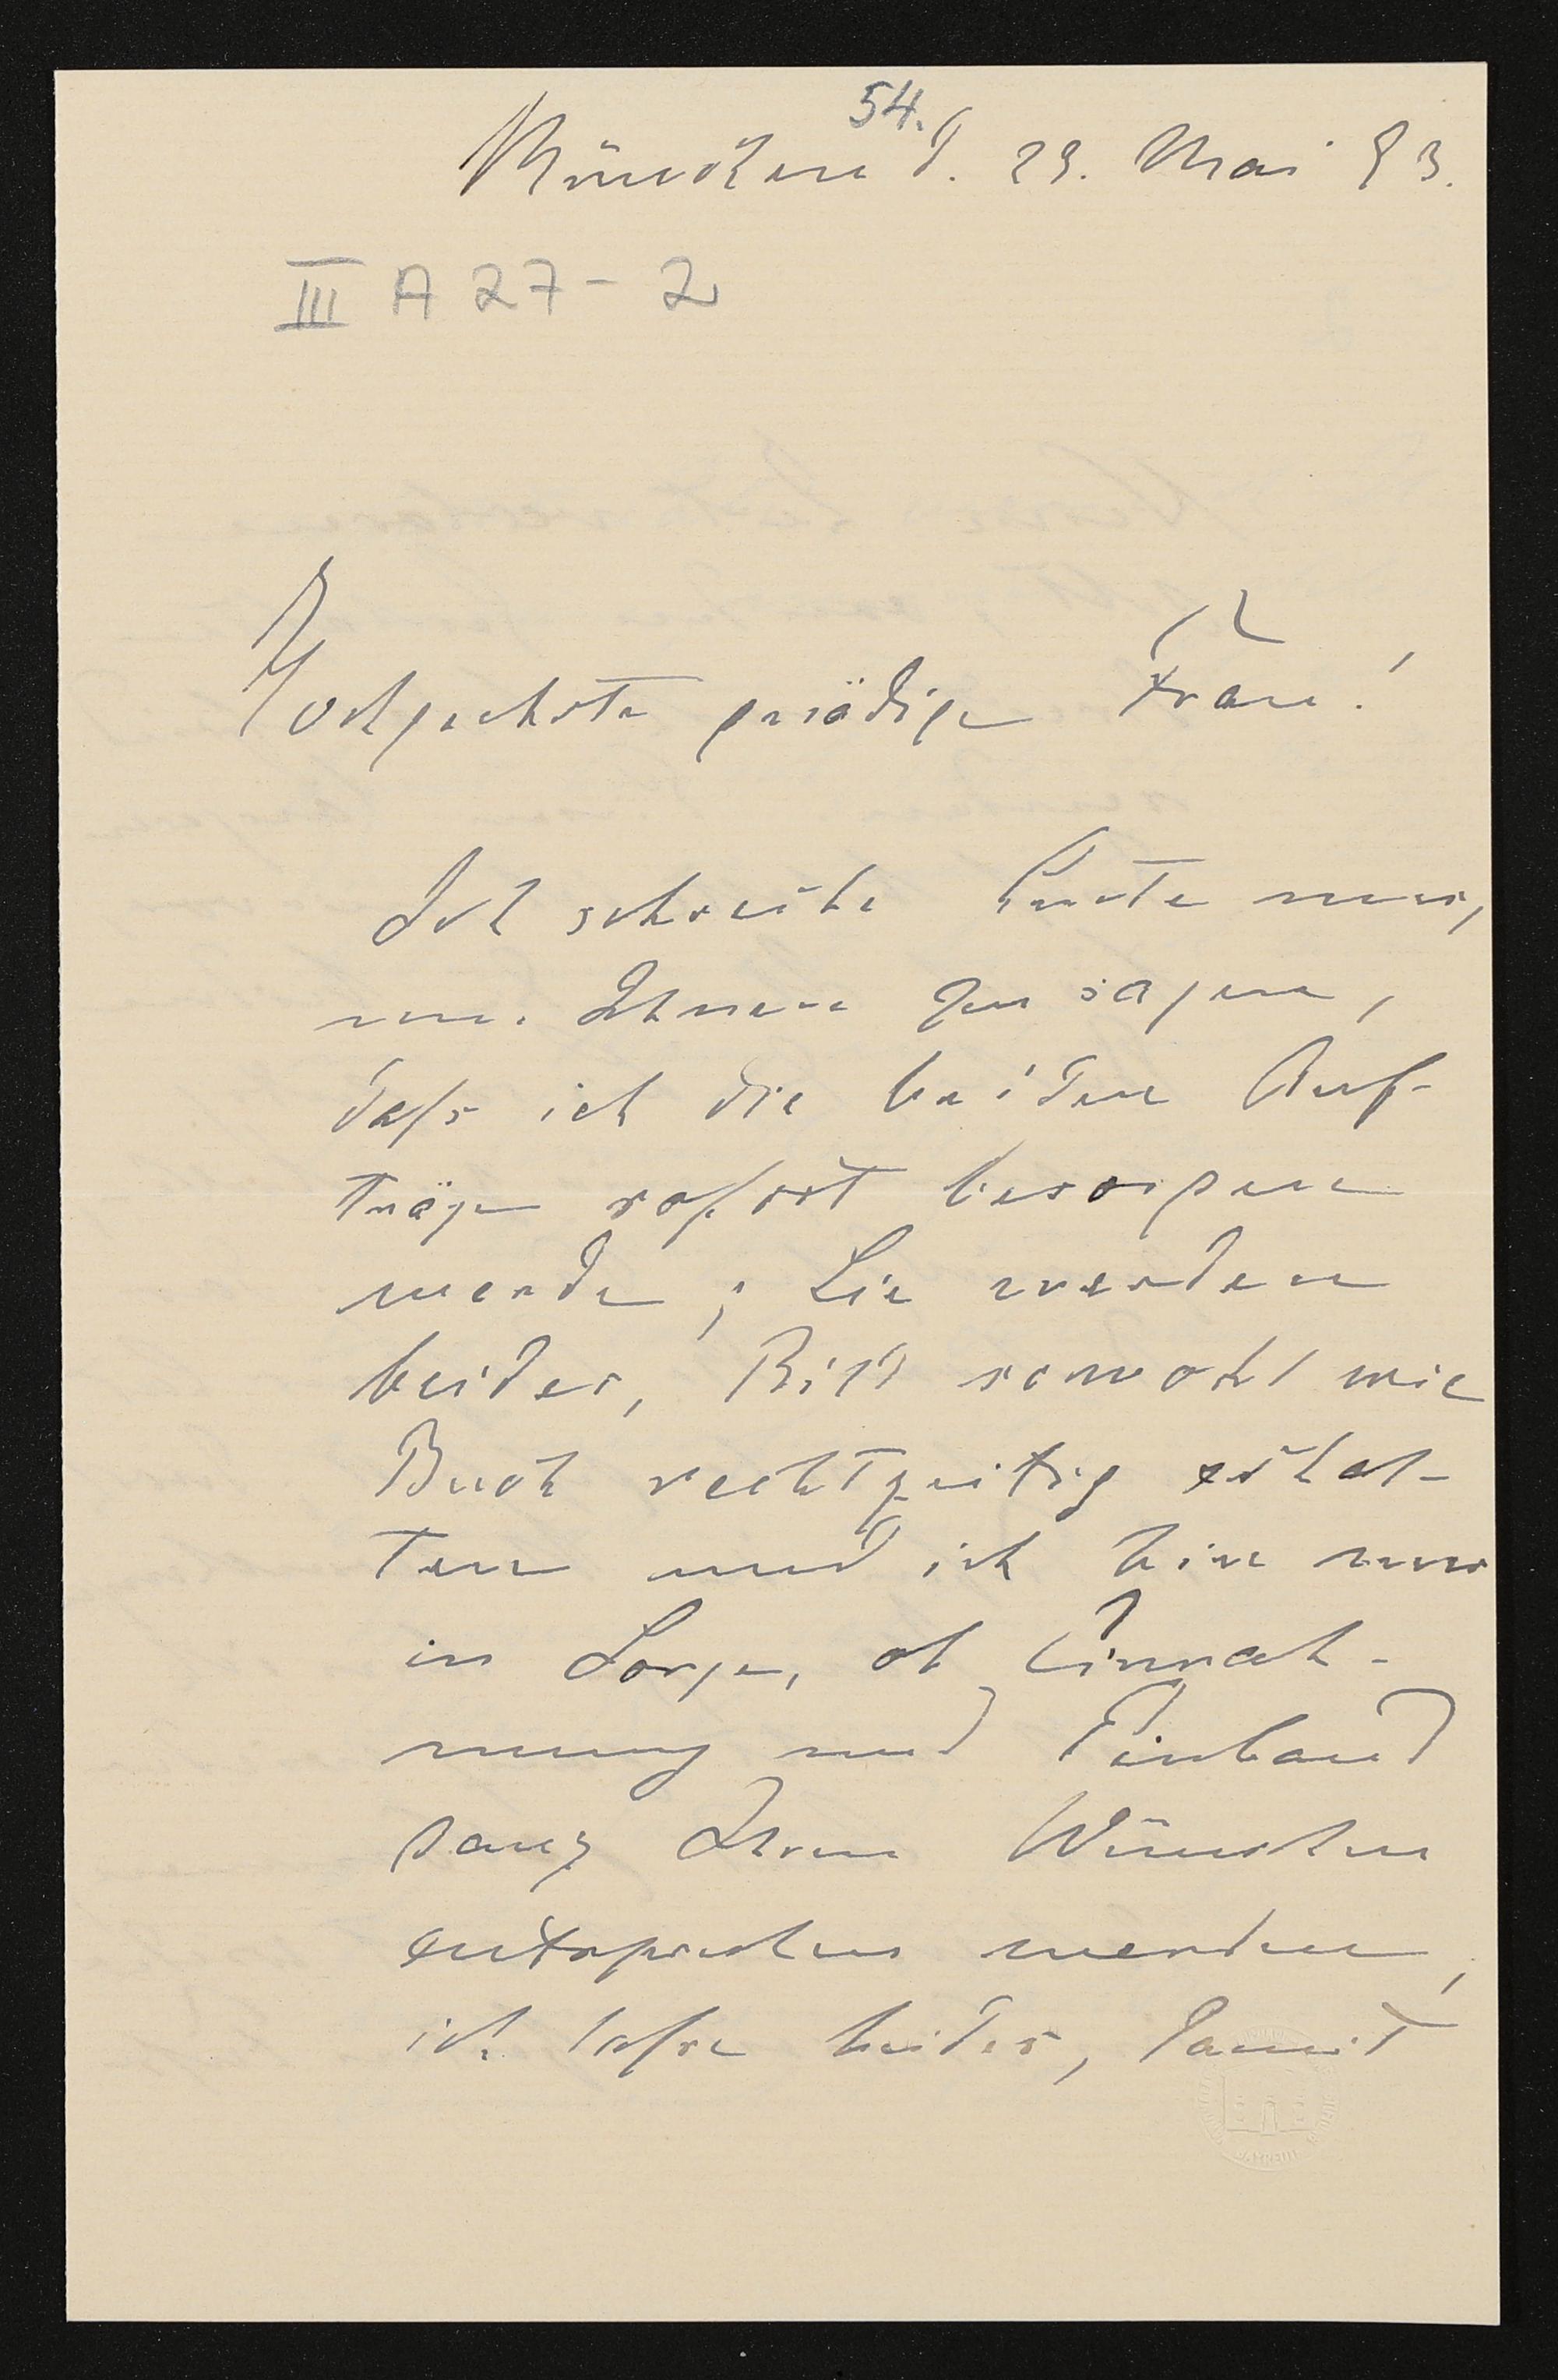 54.
München d. 29. Mai 93.
III A 27-2
Hochgeehrte gnädige Frau!
Ich schreibe heute nur,
um Ihnen zu sagen,
daß ich die beiden Auf-
träge sofort besorgen
werde; Sie werden
beides, Bild sowohl wie
Buch rechtzeitig erhal-
ten und ich bin nur
in Sorge, ob Einrah-
mung und Einband
ganz Ihren Wünschen
entsprechen werden,
ich lasse beides, damit